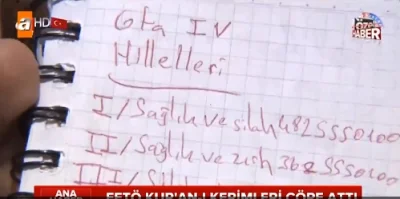 atv HD
Gta IV
Hillelleri
I/Sağlık ve silah 482SSS0100
II/Sağlık ve zırh 362SSS0100
III/
ANA HABER
FETÖ KUR'AN-I KERİMLERİ ÇÖPE ATTI